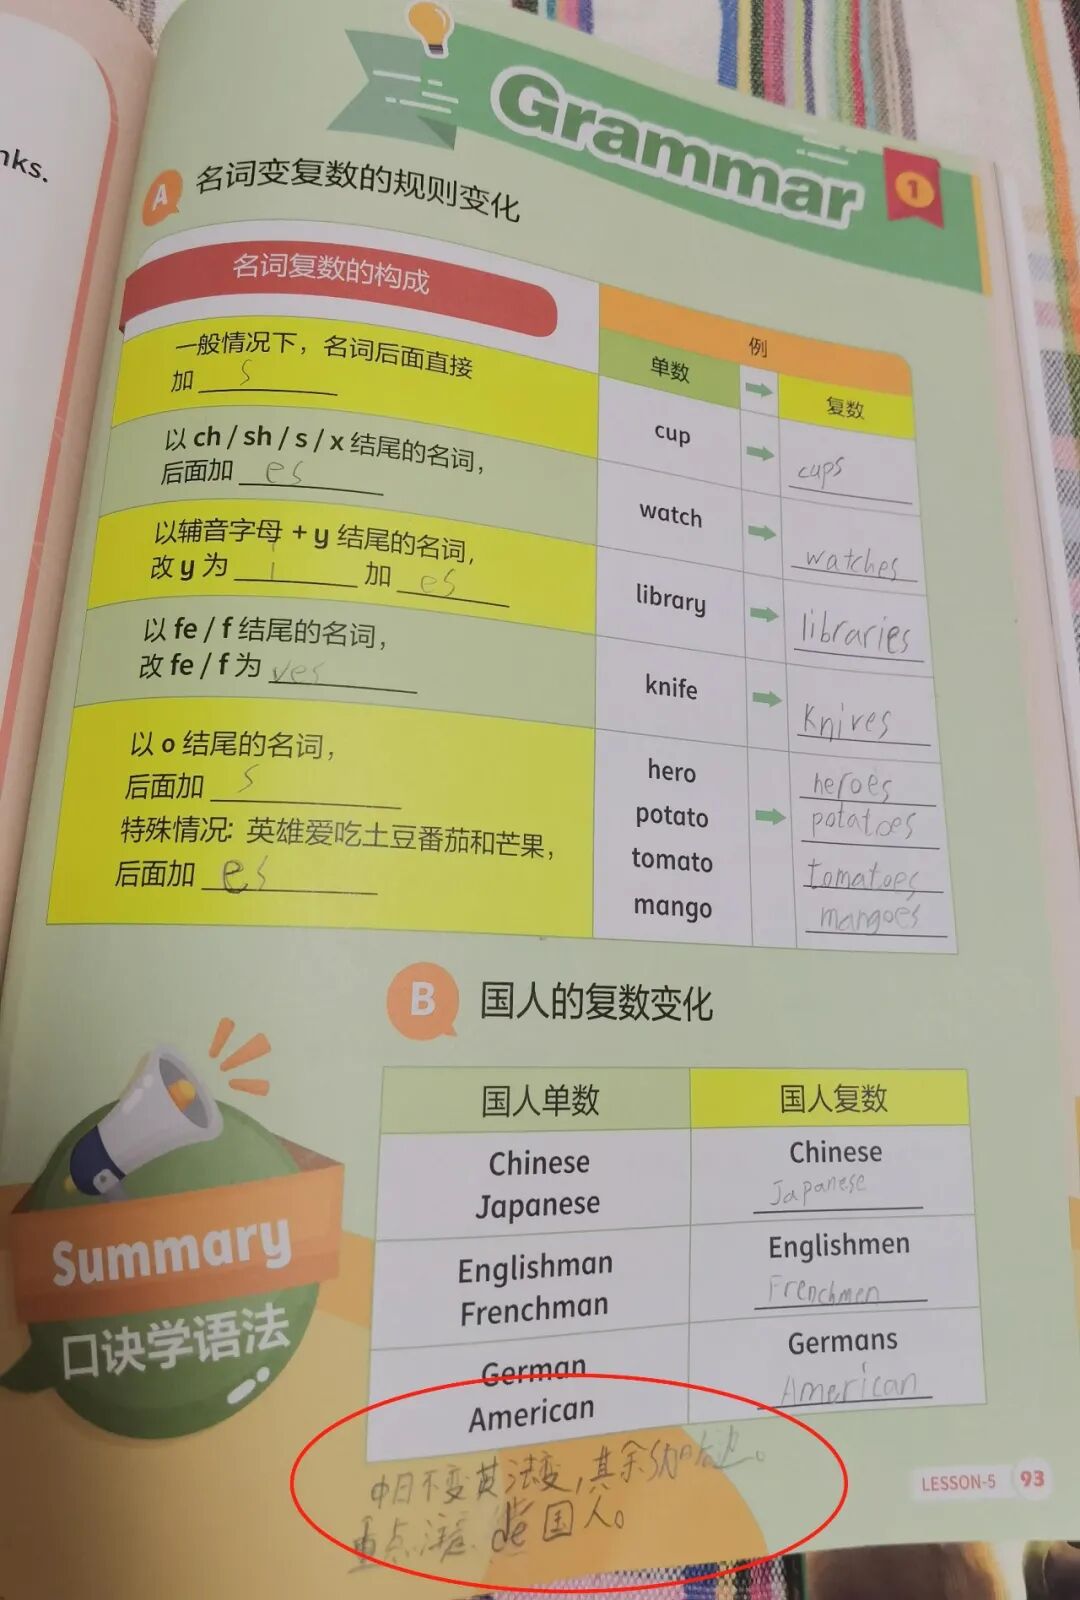 nks.
Grammar 1
A 名词变复数的规则变化
名词复数的构成
例
单数 复数
一般情况下，名词后面直接
加 s
cup cups
以 ch / sh / s / x 结尾的名词，
后面加 es
watch watches
以辅音字母 + y 结尾的名词，
改 y 为 i 加 es
library libraries
以 fe / f 结尾的名词，
改 fe / f 为 ves
knife knives
以 o 结尾的名词，
后面加 s
特殊情况：英雄爱吃土豆番茄和芒果，
后面加 es
hero heroes
potato potatoes
tomato tomatoes
mango mangoes
B 国人的复数变化
国人单数 国人复数
Chinese Chinese
Japanese Japanese
Englishman Englishmen
Frenchman Frenchmen
German Germans
American American
Summary
口诀学语法
中日不变英法变，其余s加
重点注意 de国人。
LESSON-5 93